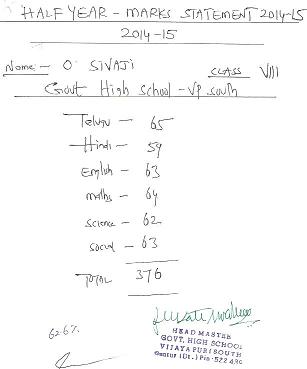 HALF YEAR - MARKS STATEMENT 2014-15
2014-15
Name:- O. SIVAJI CLASS VIII
Govt High School - VP South
Telugu - 65
Hindi - 59
English - 63
maths - 64
Science - 62
Social - 63
TOTAL 376
62.67.
HEAD MASTER
GOVT. HIGH SCHOOL
VIJAYAPURI SOUTH
Guntur (Dt.) Pin - 522 439